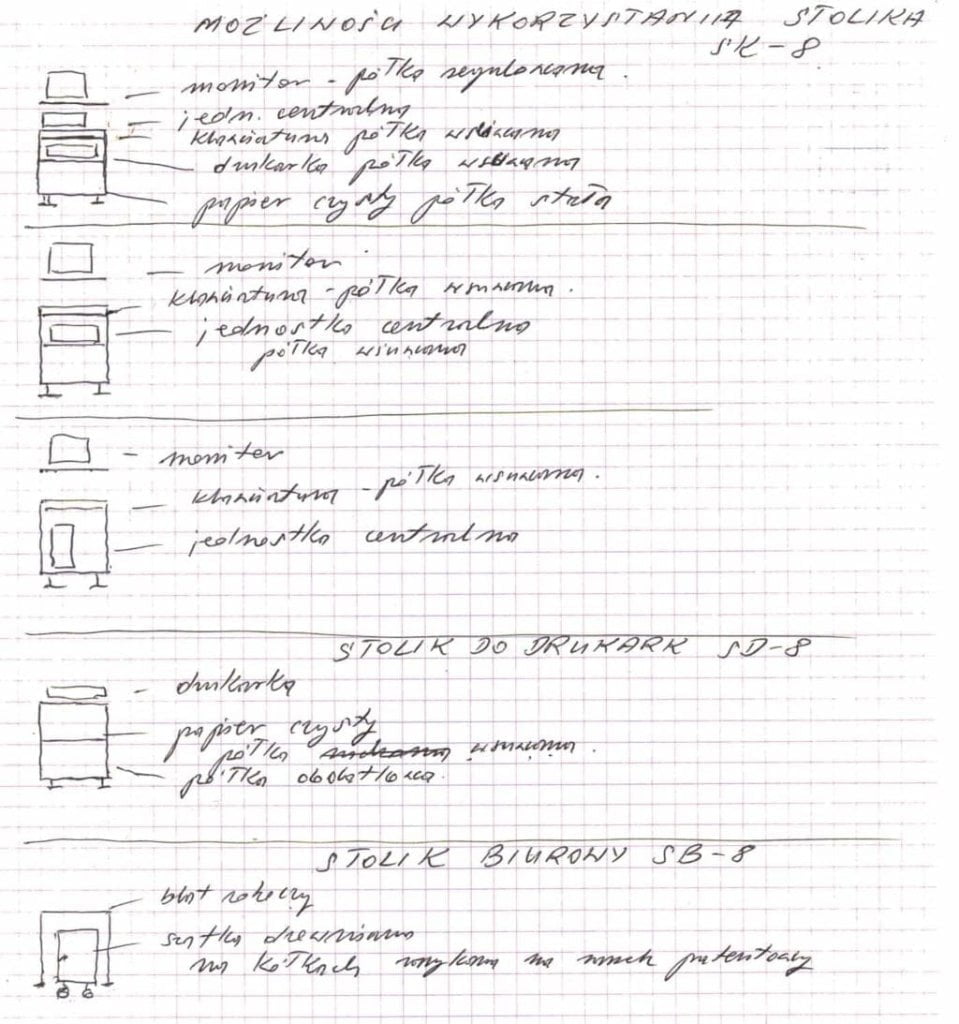 MOŻLIWOŚCI WYKORZYSTANIA STOLIKA
SK-8
monitor - półka regulowana.
jedn. centralna
klawiatura półka wsuwana
drukarka półka wsuwana
papier czysty półka stała
monitor
klawiatura - półka wsuwana.
jednostka centralna
półka wsuwana
monitor
klawiatura - półka wsuwana.
jednostka centralna
STOLIK DO DRUKARK SD-8
drukarka
papier czysty
półka wsuwana.
półka dodatkowa.
STOLIK BIUROWY SB-8
blat roboczy
szafka drewniana
na kółkach zamykana na zamek patentowy